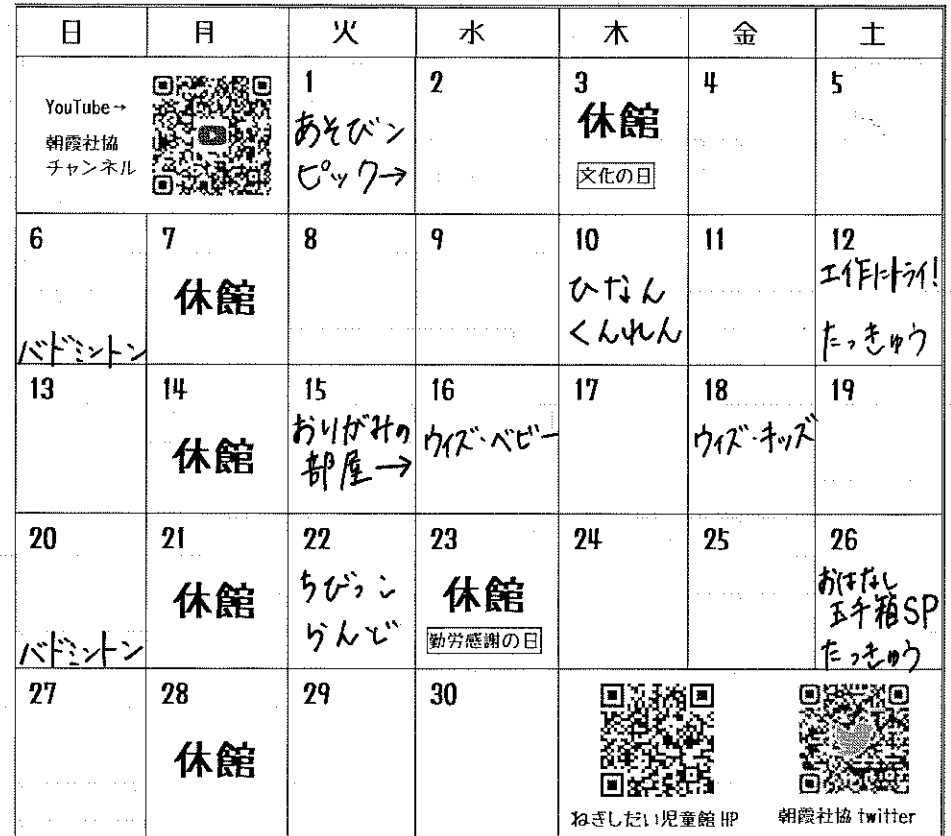 日 月 火 水 木 金 土
YouTube→
朝霞社協
チャンネル
1
あそびン
ピック→
2
3
休館
文化の日
4
5
6
バドミントン
7
休館
8
9
10
ひなん
くんれん
11
12
工作にトライ!
たっきゅう
13
14
休館
15
おりがみの
部屋→
16
ウィズ・ベビー
17
18
ウィズ・キッズ
19
20
バドミントン
21
休館
22
ちびっこ
らんど
23
休館
勤労感謝の日
24
25
26
おはなし
玉手箱SP
たっきゅう
27
28
休館
29
30
ねぎしだい児童館HP
朝霞社協twitter